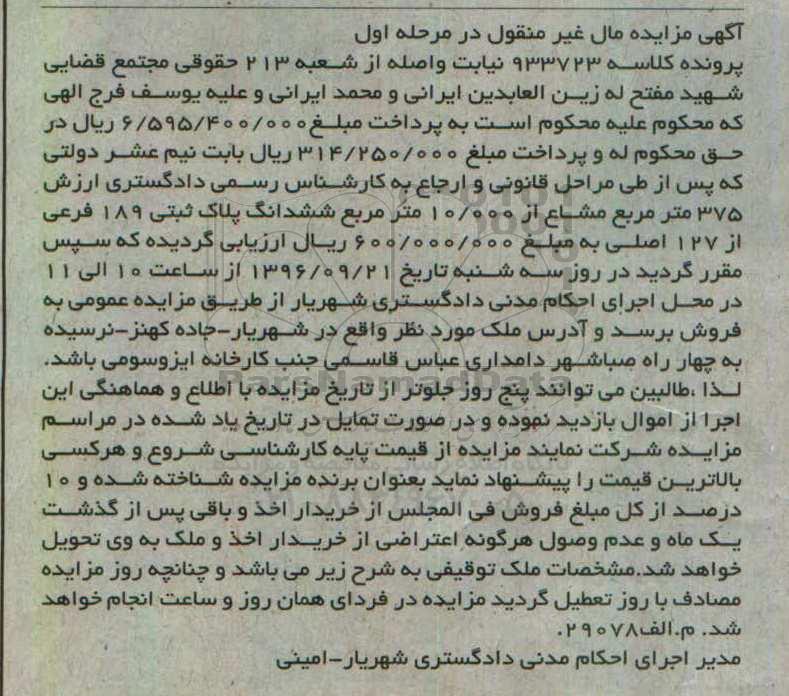 آگهی مزایده مال غیر منقول در مرحله اول
پرونده کلاسه ۹۳۳۷۲۳ نیابت واصله از شعبه ۲۱۳ حقوقی مجتمع قضایی
شهید مفتح له زین العابدین ایرانی و محمد ایرانی و علیه یوسف فرج الهی
که محکوم علیه محکوم است به پرداخت مبلغ ۶/۵۹۵/۴۰۰/۰۰۰ ریال در
حق محکوم له و پرداخت مبلغ ۳۱۴/۲۵۰/۰۰۰ ریال بابت نیم عشر دولتی
که پس از طی مراحل قانونی و ارجاع به کارشناس رسمی دادگستری ارزش
۳۷۵ متر مربع مشاع از ۱۰/۰۰۰ متر مربع ششدانگ پلاک ثبتی ۱۸۹ فرعی
از ۱۲۷ اصلی به مبلغ ۶۰۰/۰۰۰/۰۰۰ ریال ارزیابی گردیده که سپس
مقرر گردید در روز سه شنبه تاریخ ۱۳۹۶/۰۹/۲۱ از ساعت ۱۰ الی ۱۱
در محل اجرای احکام مدنی دادگستری شهریار از طریق مزایده عمومی به
فروش برسد و آدرس ملک مورد نظر واقع در شهریار-جاده کهنز-نرسیده
به چهار راه صباشهر دامداری عباس قاسمی جنب کارخانه ایزوسومی باشد.
لذا ،طالبین می توانند پنج روز جلوتر از تاریخ مزایده با اطلاع و هماهنگی این
اجرا از اموال بازدید نموده و در صورت تمایل در تاریخ یاد شده در مراسم
مزایده شرکت نمایند مزایده از قیمت پایه کارشناسی شروع و هرکسی
بالاترین قیمت را پیشنهاد نماید بعنوان برنده مزایده شناخته شده و ۱۰
درصد از کل مبلغ فروش فی المجلس از خریدار اخذ و باقی پس از گذشت
یک ماه و عدم وصول هرگونه اعتراضی از خریدار اخذ و ملک به وی تحویل
خواهد شد.مشخصات ملک توقیفی به شرح زیر می باشد و چنانچه روز مزایده
مصادف با روز تعطیل گردید مزایده در فردای همان روز و ساعت انجام خواهد
شد. م.الف۲۹۰۷۸.
مدیر اجرای احکام مدنی دادگستری شهریار-امینی